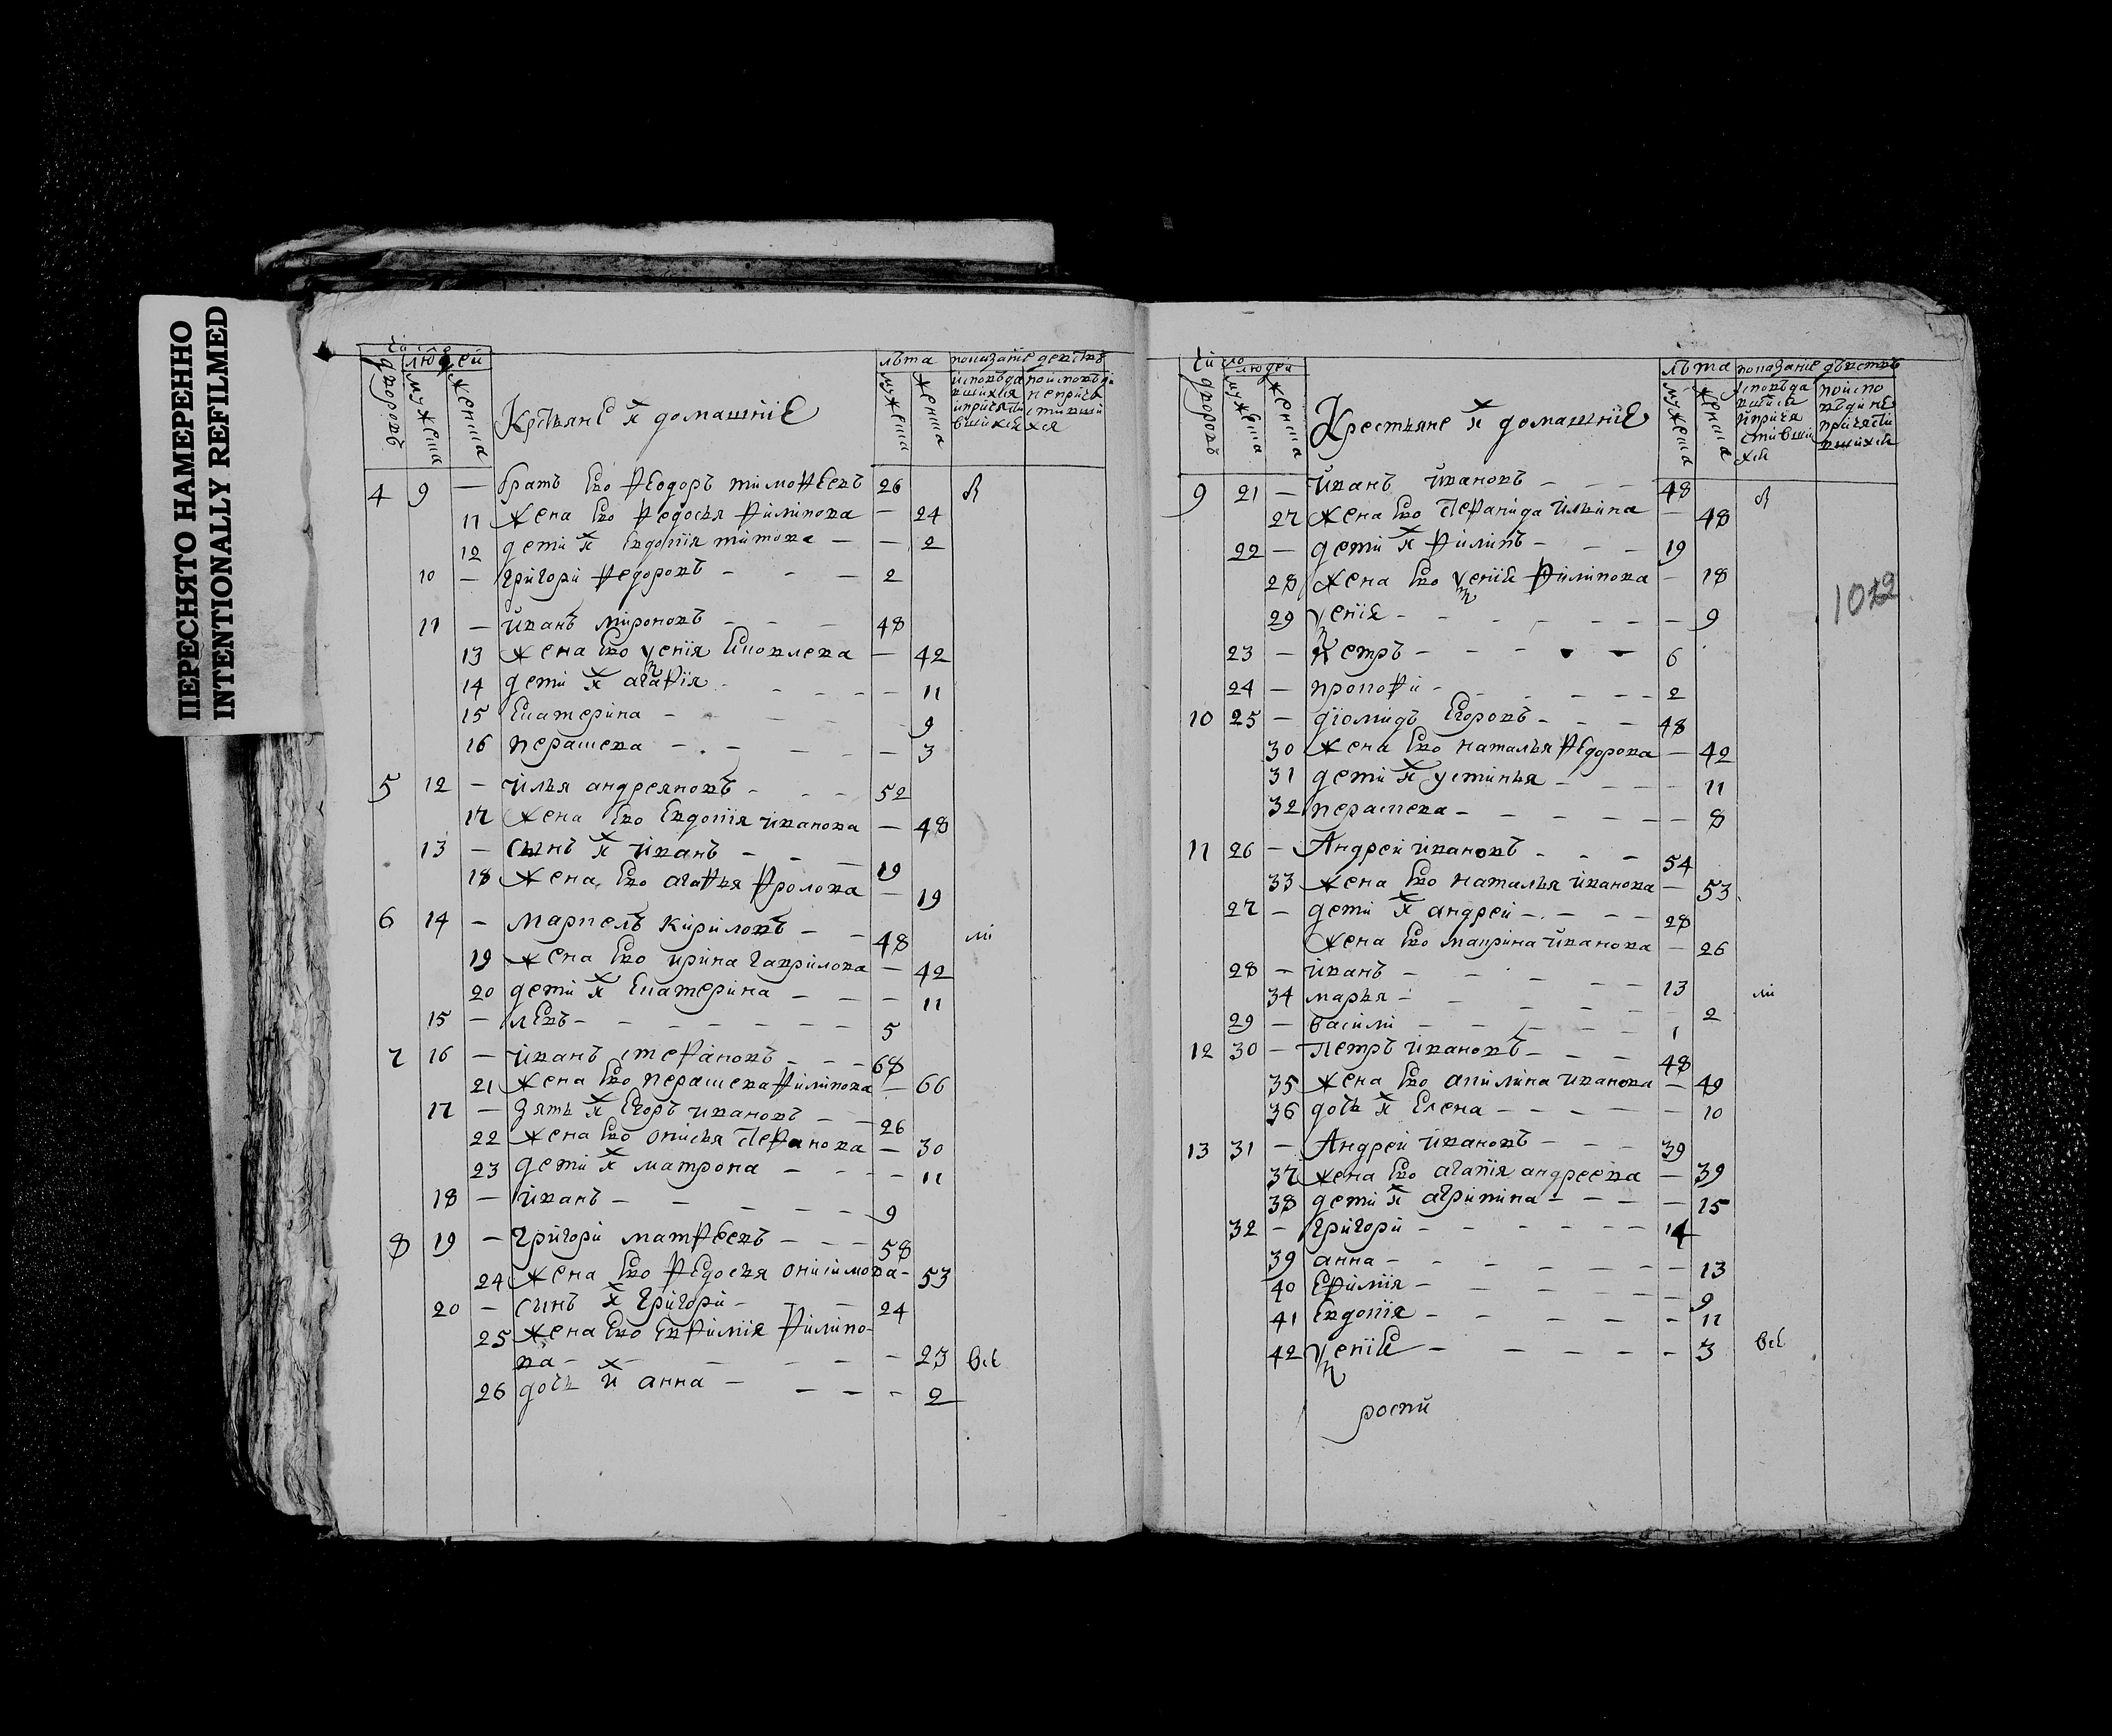 ПЕРЕСНЯТО НАМЕРЕННО
INTENTIONALLY REFILMED
число
дворовъ
людей
мужеска
женска
Крстьянѣ их домашнїе
лѣта
мужеска
женска
показанїе действъ
4 9 — братъ Его Ѳеодоръ тимоѳеевъ 26
11 жена Его Ѳедосья Филипова — 24
12 дети их Евдокїя титова — — 2
10 — григори Ѳедоровъ — — — 2
11 — иванъ мироновъ — — — 48
13 жена Его ѯенїя Яковлева — 42
14 дети их агаѳїя — — — — 11
15 Екатерина — — — 9
16 параскева — — — — — 3
5 12 — илья андреяновъ — — — 52
17 жена Его Евдокїя иванова — 48
13 — сынъ их иванъ — — — 19
18 жена Его агаѳья Фролова — 19
6 14 — маркелъ кириловъ — — 48
19 жена Его ирина гаврилова — 42
20 дети их Екатерина — — — 11
15 — левъ — — — — — — — 5
7 16 — иванъ стеѳановъ — — — 68
21 жена Его параскева Филипова — 66
17 — зять их Егоръ ивановъ — — 26
22 жена Его Стеѳанова — 30
23 дети их матрона — — — 11
18 — иванъ — — — — — 9
8 19 — григори матѳеевъ — — — 58
24 жена Его Ѳедосья онисимова — 53
20 — сынъ их григори — — — 24
25 жена Его Евѳимїя Филипо-
ва — — — — — — 23 всѣ
26 дочь их анна — — — — 2
число
дворовъ
людей
мужеска
женска
Крестьяне их домашнїе
лѣта
мужеска
женска
показанїе дѣиствъ
9 21 — иванъ ивановъ — — — 48
27 жена Его Стеѳанида ильина — 48
22 — дети их Филипъ — — — 19
28 жена Его ѯенїя Филипова — 18
29 ѯенїя — — — — — — — 9
1012
23 — петръ — — — — — 6
24 — прокоѳи — — — — — 2
10 25 — диомидъ Егоровъ — — — 48
30 жена Его наталья Ѳедорова — 42
31 дети их устинья — — — — 11
32 параскева — — — — — — 8
11 26 — Андреи ивановъ — — — 54
33 жена Его наталья иванова — 53
27 — дети их андреи — — — — 28
жена Его маврина иванова — 26
28 — иванъ — — — — — 13
34 марья — — — — — — 2
29 — васили — — — — — 1
12 30 — Петръ ивановъ — — — 48
35 жена Его акилина иванова — 49
36 дочь их Елена — — — — — 10
13 31 — Андреи ивановъ — — — 39
37 жена Его агапїя андреева — 39
38 дети их агрипина — — — — 15
32 — григори — — — — — — 14
39 анна — — — — — — — 13
40 Еѳимїя — — — — — — 9
41 Евдокїя — — — — — 11
42 ѯенїя — — — — — — 3 всѣ